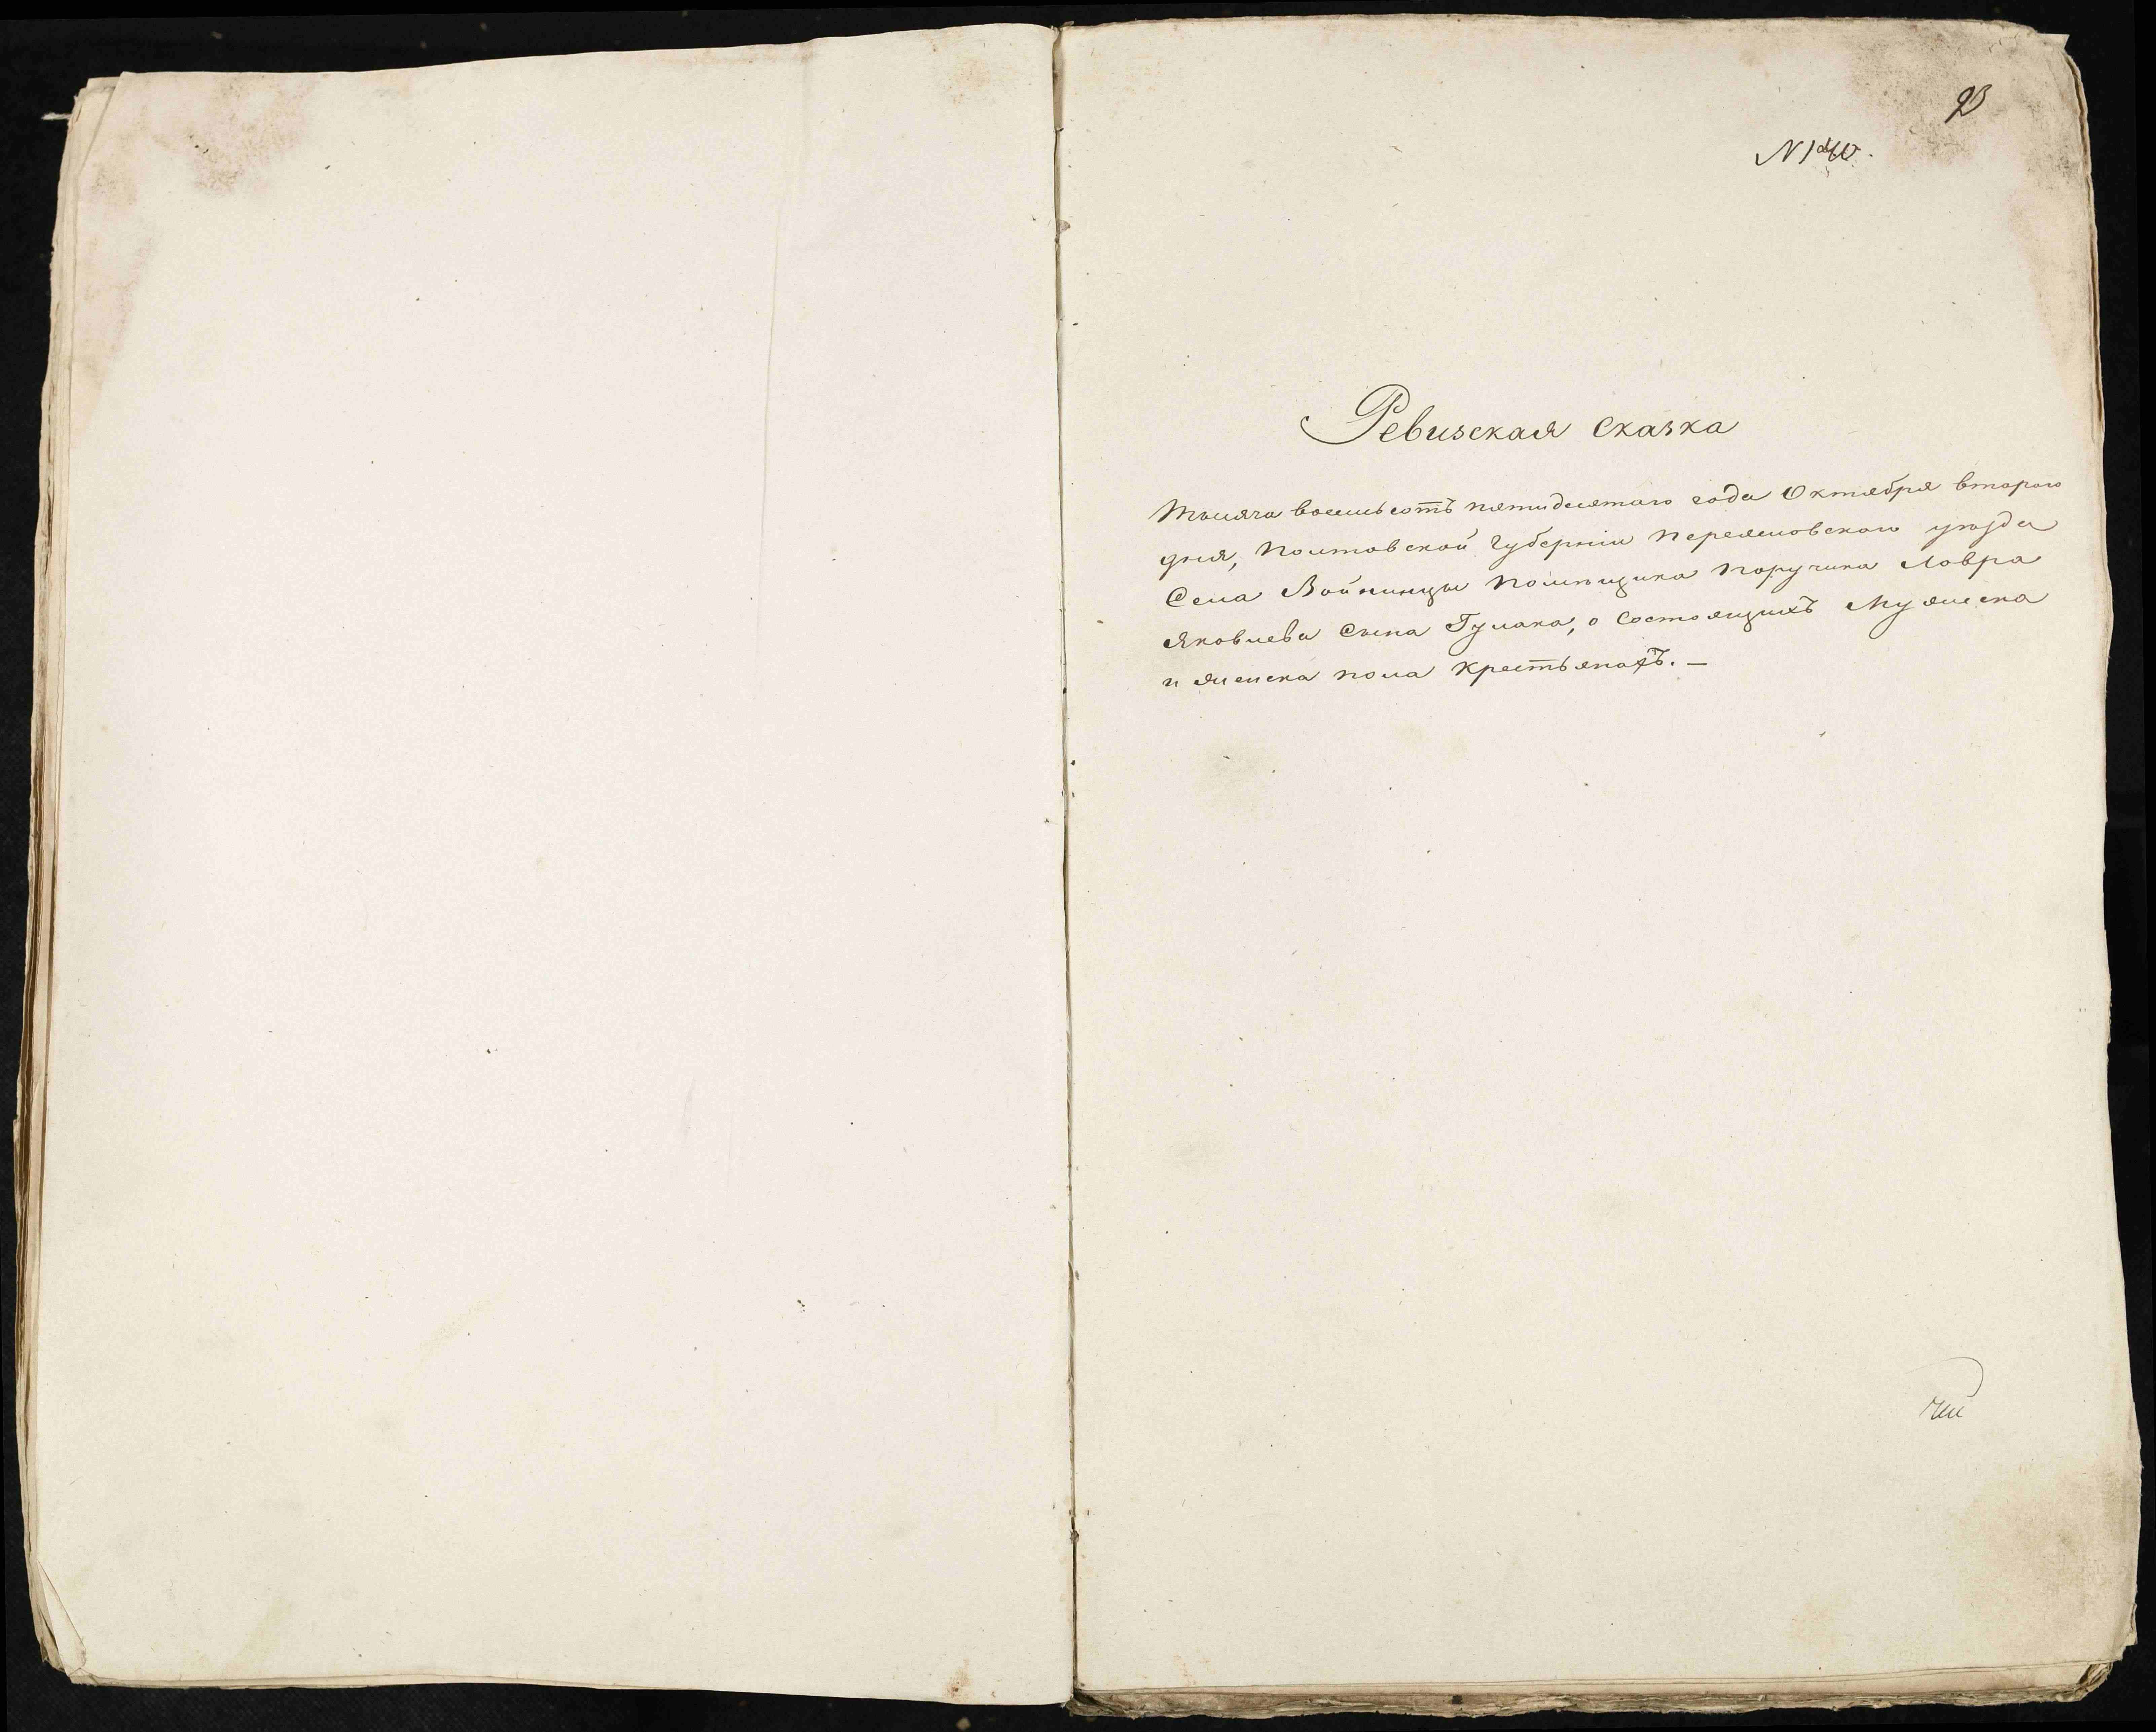 23
Ревизская сказка
Тысяча восемьсотъ пятидесятаго года Октября втораго
дня, Полтавской Губерніи Переяславского уѣзда
Села Войнинцы Помѣщика Поручика Лавра
Яковлева Сына Гулака, о Состоящихъ Мужеска
и женска пола крестьянахъ. —